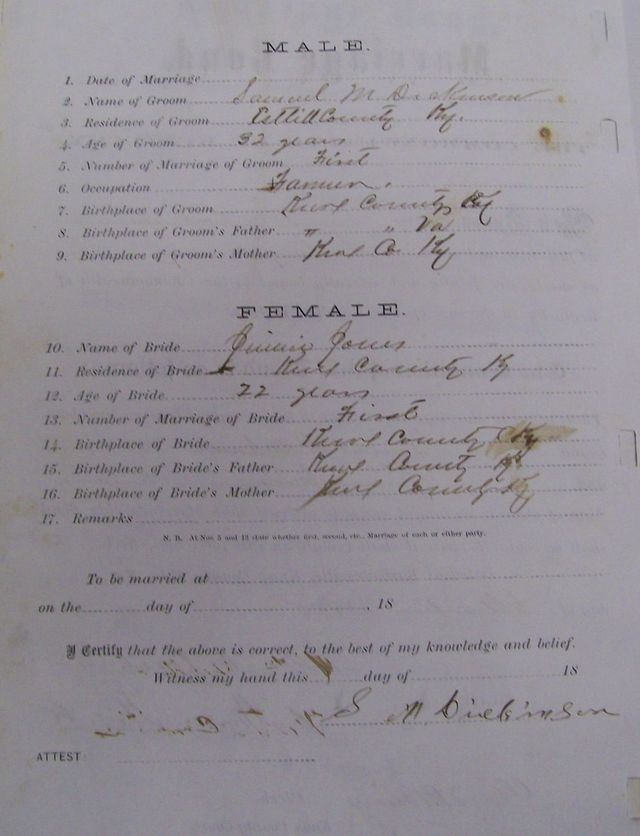 MALE.
1. Date of Marriage
2. Name of Groom Samuel M Dickinson
3. Residence of Groom Estill County Ky.
4. Age of Groom 32 years
5. Number of Marriage of Groom First
6. Occupation Farmer.
7. Birthplace of Groom Knox County Ky
8. Birthplace of Groom's Father " " Va
9. Birthplace of Groom's Mother Knox Co Ky
FEMALE.
10. Name of Bride Jones
11. Residence of Bride Knox County Ky
12. Age of Bride 22 years
13. Number of Marriage of Bride First
14. Birthplace of Bride Knox County Ky
15. Birthplace of Bride's Father Knox County Ky
16. Birthplace of Bride's Mother Knox County Ky
17. Remarks
N. B. At Nos. 5 and 13 state whether first, second, etc., Marriage of each or either party.
To be married at
on the day of , 18
I Certify that the above is correct, to the best of my knowledge and belief.
Witness my hand this day of 18
S M Dickinson
ATTEST: